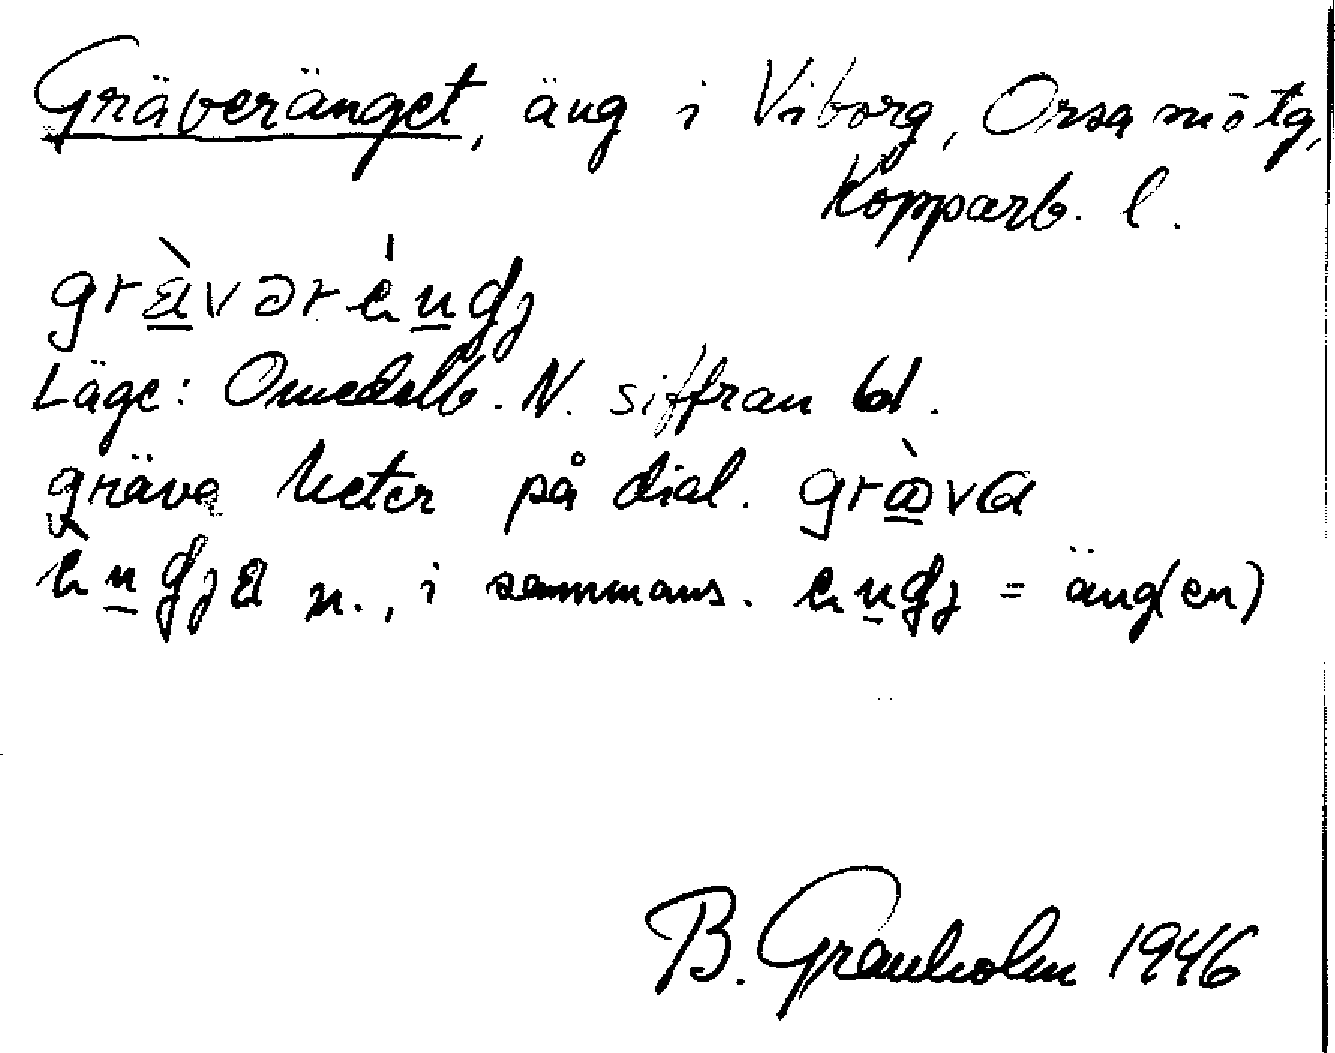 Gräveränget, äng i Viborg, Orsa mötg,
Kopparb. l.
Läge: Omedelb. N. siffran 61.
gräva heter på dial. gràva
n., i sammans. = äng(en)
B. Granholm 1946